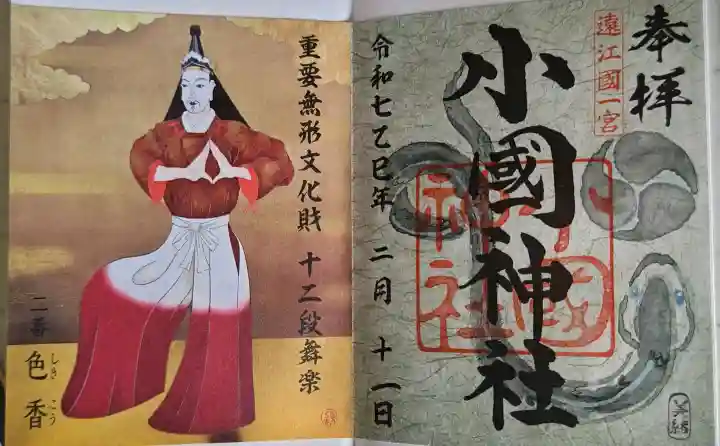 奉拝
遠江國一宮
小國神社
小國
神社
令和七乙巳年 二月 十一日
重要無形文化財 十二段舞楽
二番
色香
しき こう